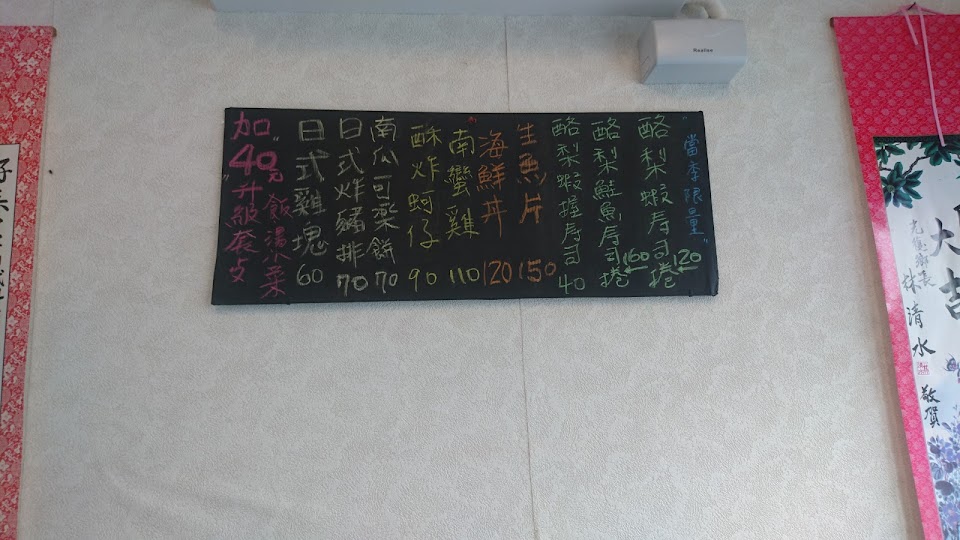 "當季限量"
酪梨蝦寿司捲 120
酪梨鮭魚寿司捲 160
酪梨蝦握寿司 40
生魚片 150
海鮮丼 120
"南蠻雞 110
酥炸蚵仔 90
南瓜可樂餅 70
日式炸豬排 70
日式雞塊 60
加"40元"升級套攴
飯湯小菜
Realtee
大吉
林清水
敬賀